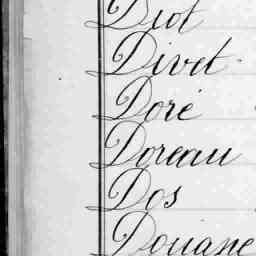 Diot
Divet
Doré
Doreau
Dos
Douane